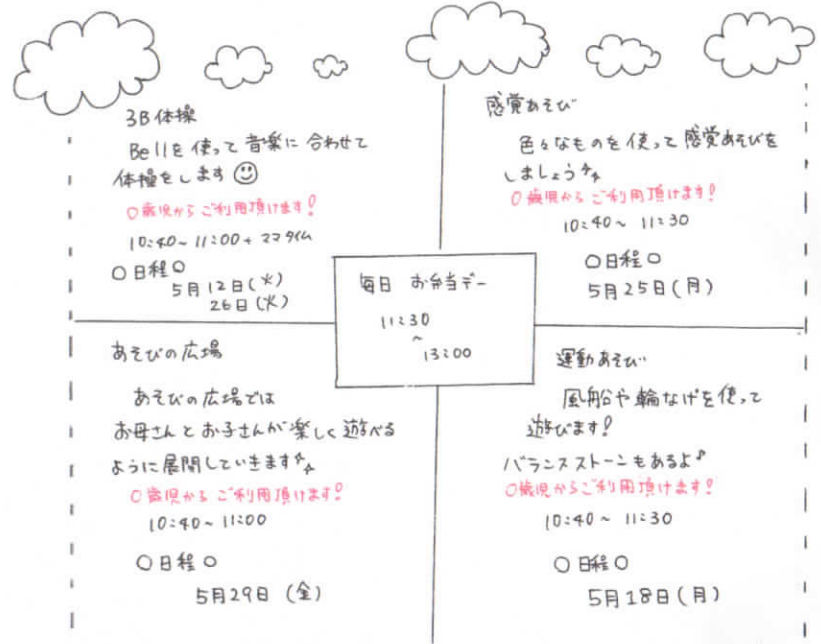 3B体操
Bellを使って音楽に合わせて
体操をします
0歳児からご利用頂けます!
10:40~11:00+ママタイム
○日程○
5月12日(火)
26日(火)
感覚あそび
色々なものを使って感覚あそびを
しましょう
0歳児からご利用頂けます!
10:40~11:30
○日程○
5月25日(月)
毎日 お弁当デー
11:30
~
13:00
あそびの広場
あそびの広場では
お母さんとお子さんが楽しく遊べる
ように展開していきます
0歳児からご利用頂けます!
10:40~11:00
○日程○
5月29日(金)
運動あそび
風船や輪なげを使って
遊びます!
バランスストーンもあるよ♪
0歳児からご利用頂けます!
10:40~11:30
○日程○
5月18日(月)